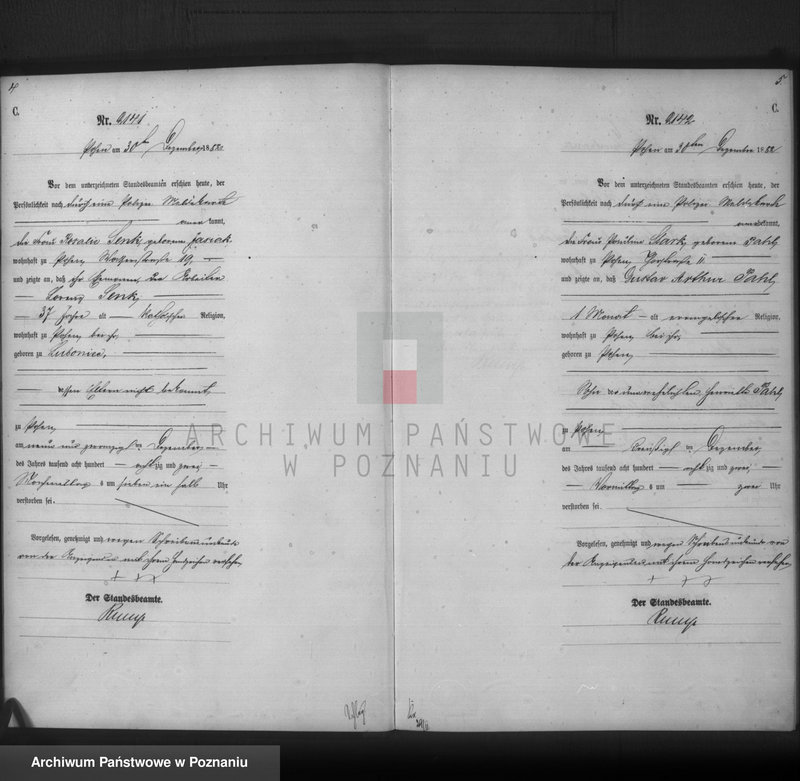 4
C.
Nr. 2141
Posen am 30ten Dezember 1882
Vor dem unterzeichneten Standesbeamten erschien heute, der
Persönlichkeit nach durch eine Polizei Meldekarte
anerkannt,
die Frau Rosalie Senk, geborene Jasiak
wohnhaft zu Posen, 19,
und zeigte an, daß ihr Ehemann, der Arbeiter
Lorenz Senk,
37 Jahre alt katholischer Religion,
wohnhaft zu Posen bei ihr,
geboren zu
dessen Eltern nicht bekannt,
zu Posen,
am neun und zwanzigsten Dezember
des Jahres tausend acht hundert acht zig und zwei
Nachmittags um sieben ein halb Uhr
verstorben sei.
Vorgelesen, genehmigt und wegen Schreibensunkunde
von der Anzeigenden mit ihrem Handzeichen versehen,
+ + +
Der Standesbeamte.
5
C.
Nr. 2142
Posen am 30ten Dezember 1882
Vor dem unterzeichneten Standesbeamten erschien heute, der
Persönlichkeit nach durch eine Polizei Meldekarte
anerkannt,
die Frau Pauline Stark, geborene Pahl,
wohnhaft zu Posen, 11
und zeigte an, daß Gustav Arthur Pahl,
1 Monat alt evangelischer Religion,
wohnhaft zu Posen bei ihr,
geboren zu Posen,
Sohn der unverehelichten Henriette Pahl,
zu Posen,
am dreißigsten Dezember
des Jahres tausend acht hundert acht zig und zwei
Vormittags um zwei Uhr
verstorben sei.
Vorgelesen, genehmigt und wegen Schreibensunkunde von
der Anzeigenden mit ihrem Handzeichen versehen,
+ + +
Der Standesbeamte.
ARCHIWUM PAŃSTWOWE
W POZNANIU
Archiwum Państwowe w Poznaniu